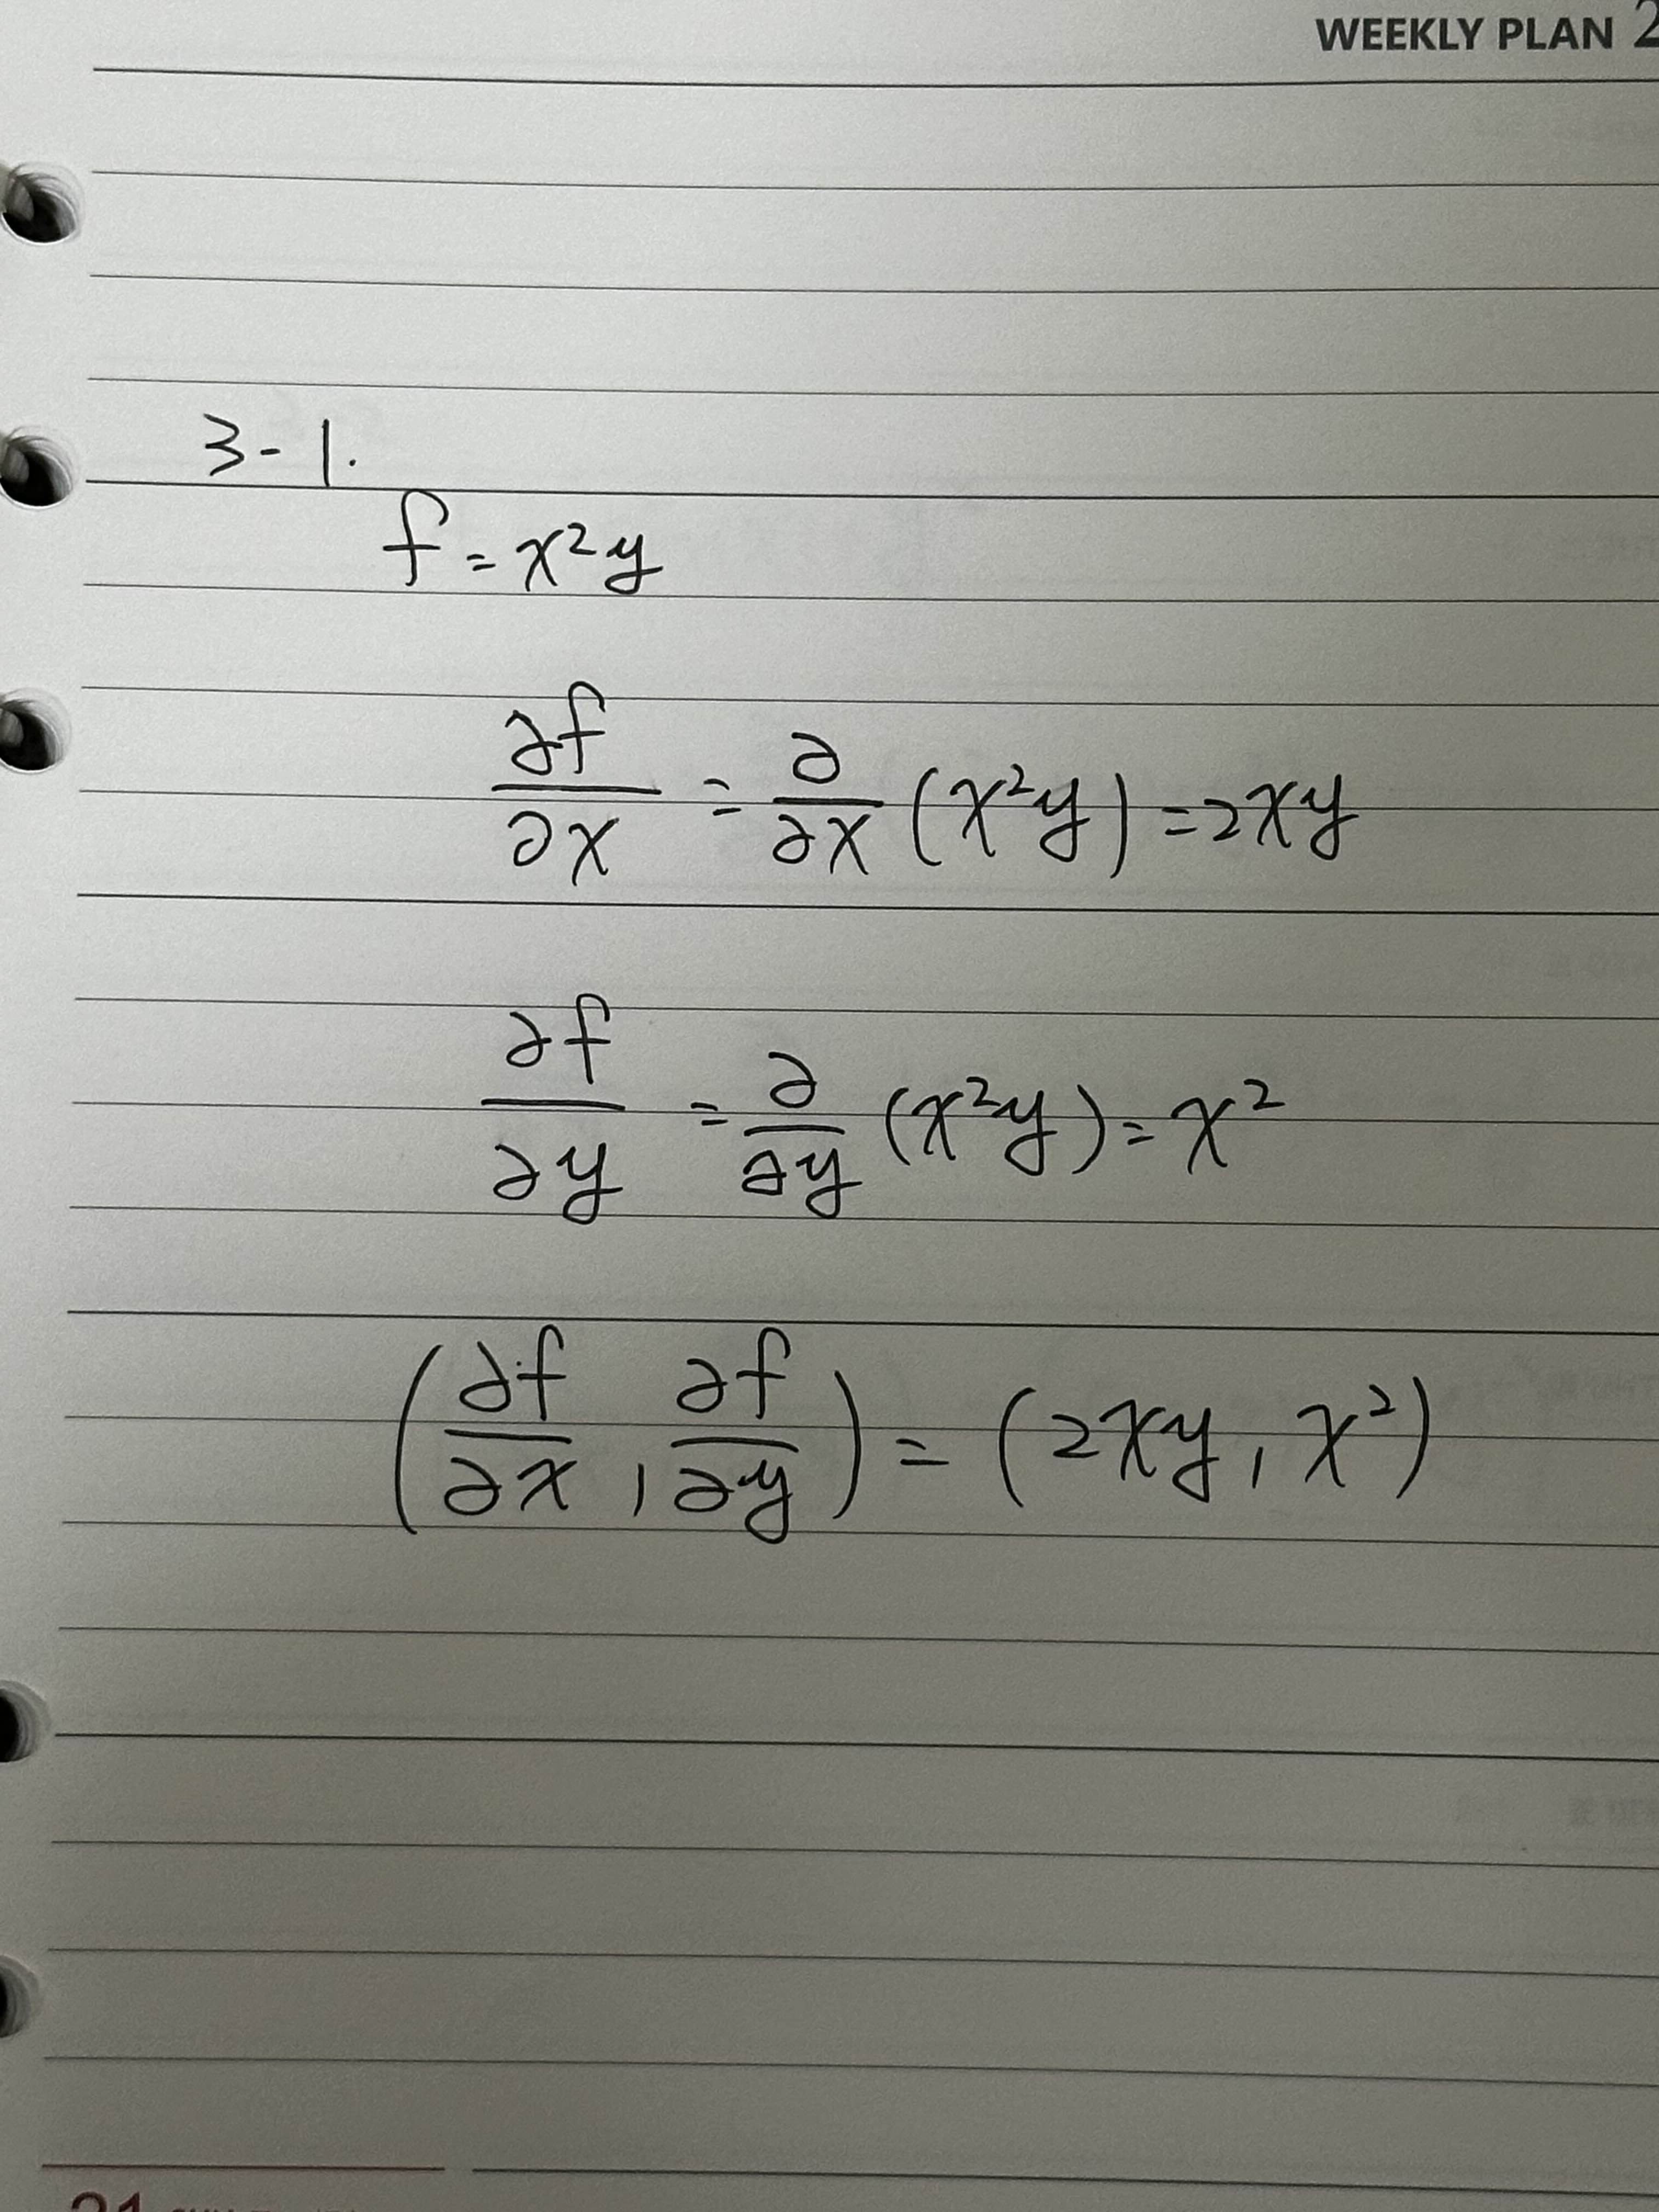 WEEKLY PLAN 2
3-1.
f = x²y
∂f/∂x = ∂/∂x (x²y) = 2xy
∂f/∂y = ∂/∂y (x²y) = x²
(∂f/∂x, ∂f/∂y) = (2xy, x²)